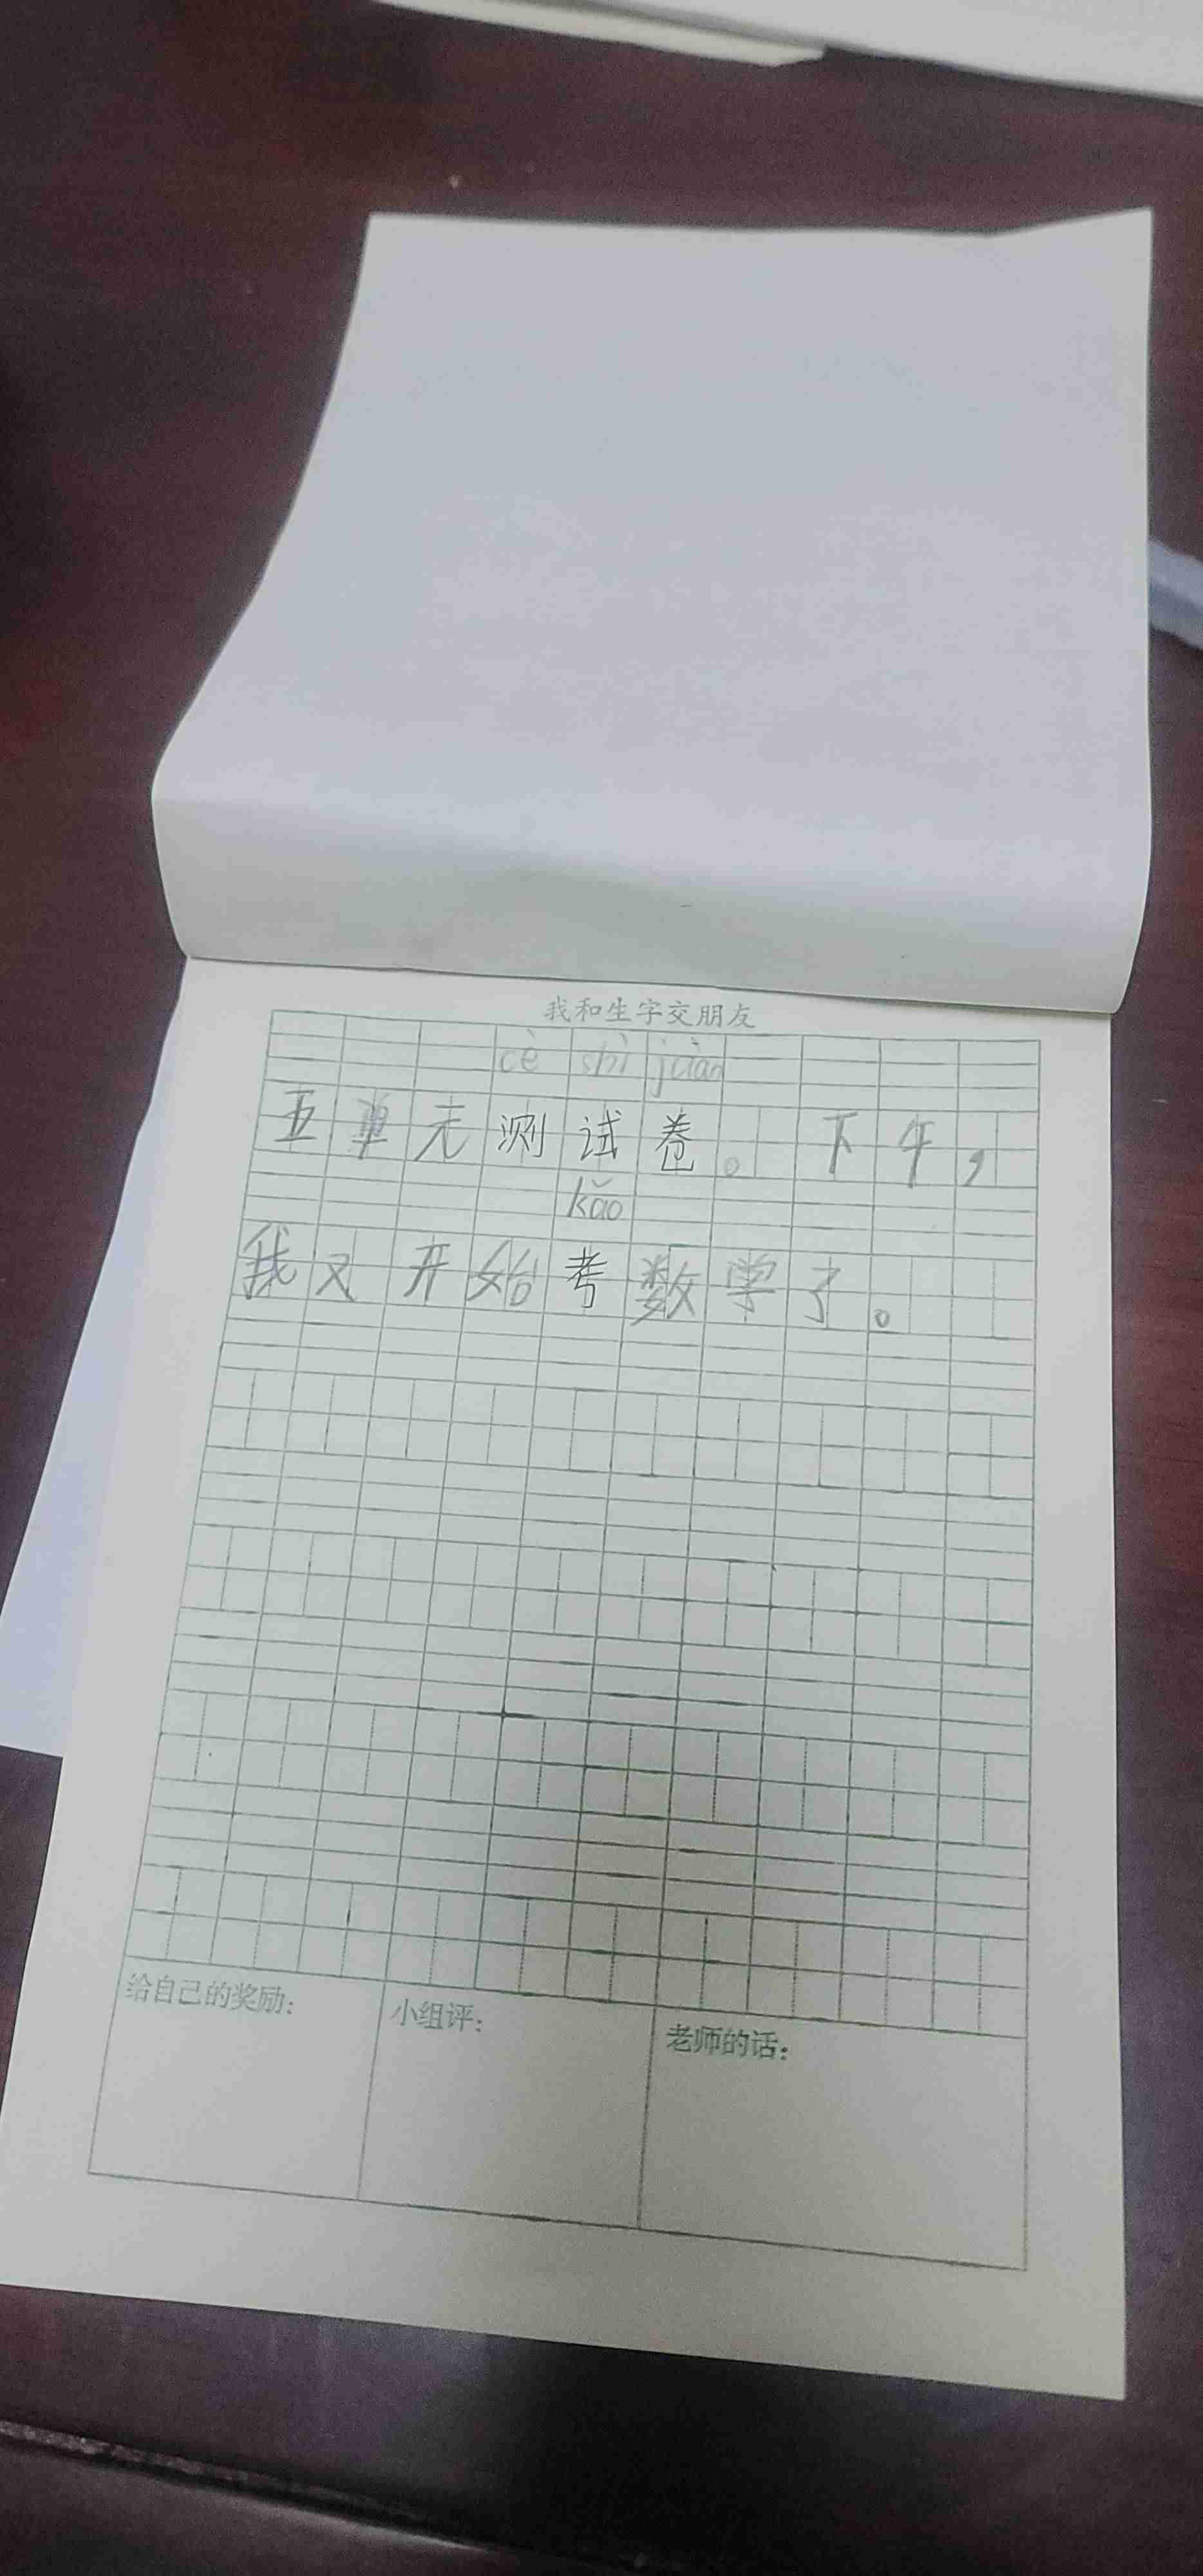 我和生字交朋友
cè shì juàn
五单元测试卷。下午，
kǎo
我又开始考数学了。
给自己的奖励：
小组评：
老师的话：